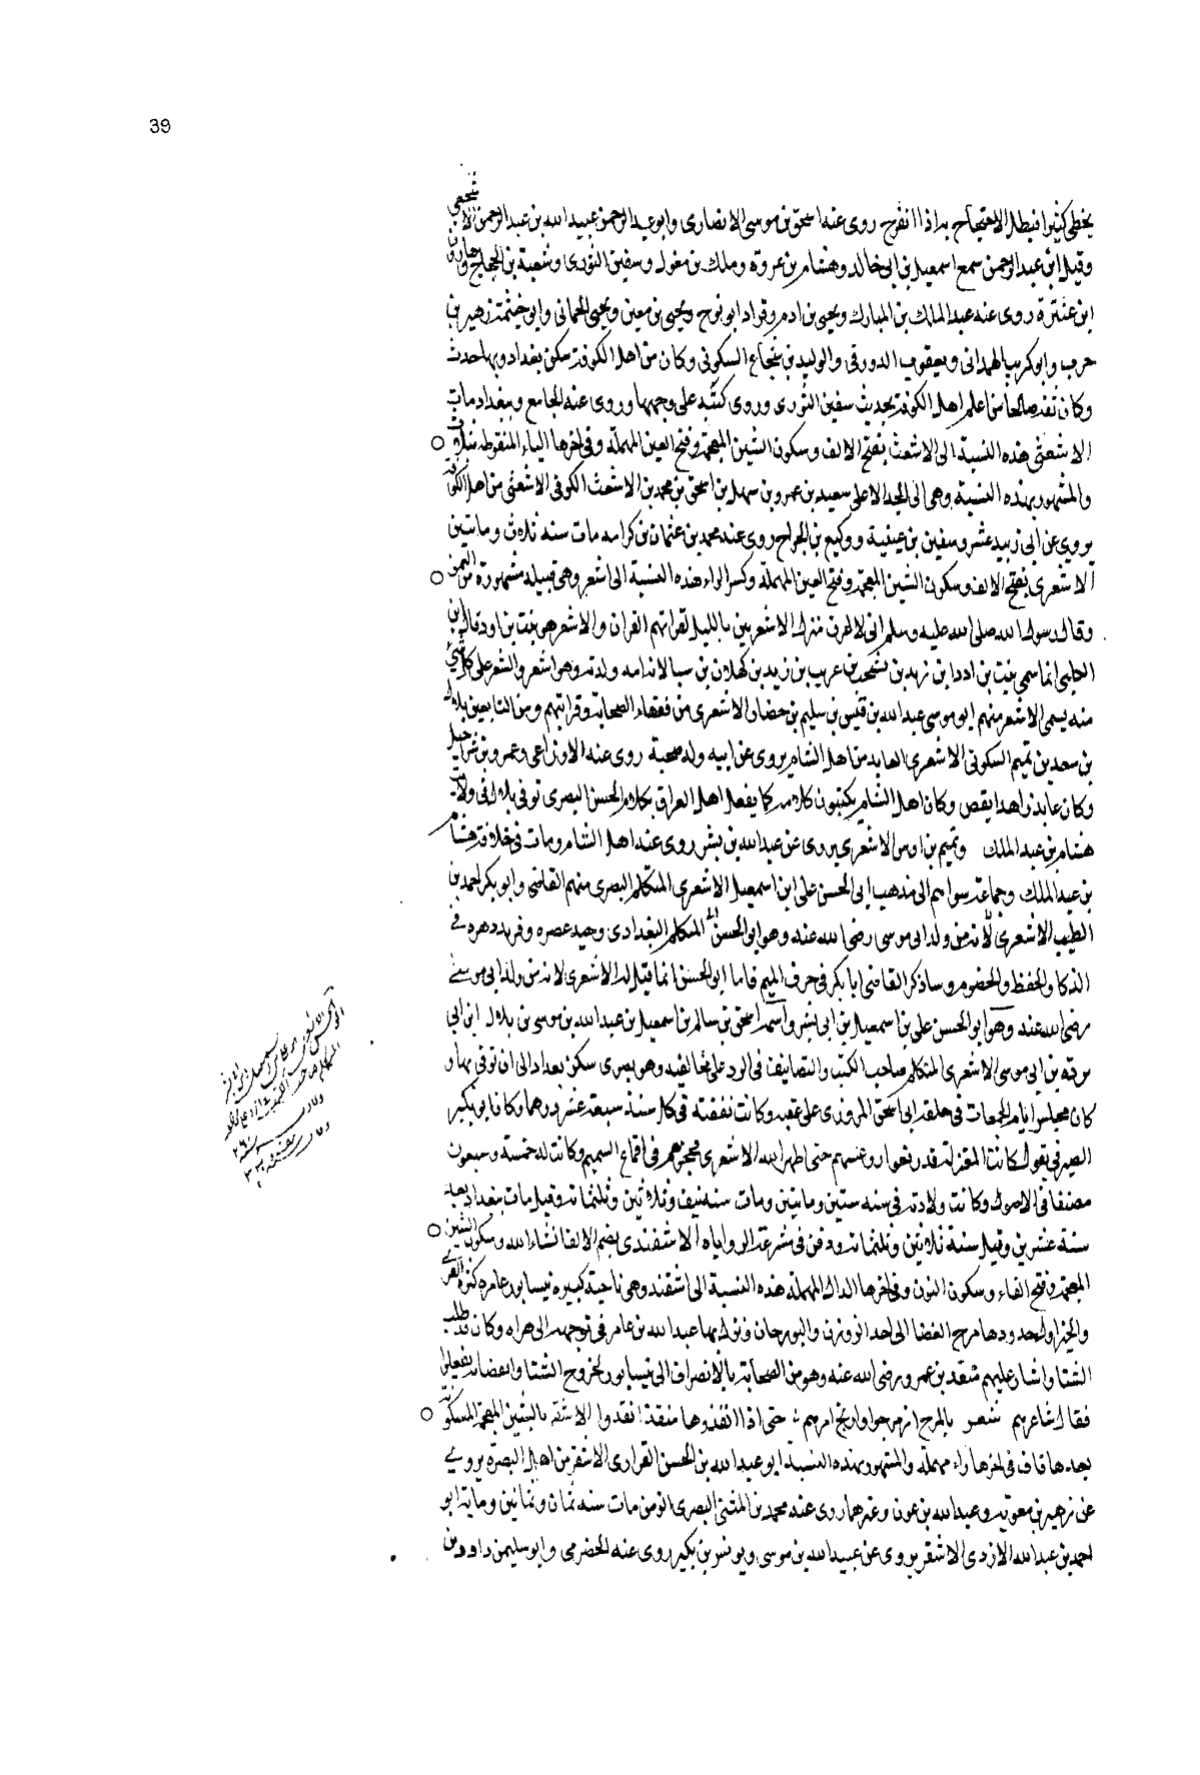 39
يخطى كثيرا فبطل الاحتجاج به اذا انفرد روى عنه اسحق بن موسى الانصارى وابو عبد الرحمن عبيد الله بن عبد الرحمن الاشجعي
وقيل ابن عبد الرحمن سمع اسمعيل بن ابى خالد وهشام بن عروة وملك بن مغول وسفين الثورى وشعبة بن الحجاج وهارون
ابن عنترة روى عنه عبد الملك بن المبارك ويحيى بن ادم وقراد ابو نوح ويحيى بن معين ويحيى الحمانى وابو خيثمة زهير بن
حرب وابو كريب الهمدانى ويعقوب الدورقى والوليد بن شجاع السكونى وكان من اهل الكوفة سكن بغداد وبها حدث
وكان ثقة صالحا من اعلم اهل الكوفة بحديث سفين الثورى وروى كتبه على وجهها وروى عنه الجامع وببغداد مات
الاشعثى هذه النسبة الى الاشعث بفتح الالف وسكون الشين المعجمة وفتح العين المهملة وفى اخرها الياء المنقوطة بثلاث
والمشهور بهذه النسبة وهى الى الجد الاعلى سعيد بن عمرو بن سهل بن اسحق بن محمد بن الاشعث الكوفى الاشعثى من اهل الكوفة
يروى عن ابى زبيد عشر وسفين بن عيينة ووكيع بن الجراح روى عنه محمد بن عثمان بن كرامه مات سنه ثلاث وماتين
الاشعرى بفتح الالف وسكون الشين المعجمة وفتح العين المهملة وكسر الراء هذه النسبة الى اشعر وهى قبيلة مشهورة من اليمن
وقال رسول الله صلى الله عليه وسلم انى لاعرف منزل الاشعريين بالليل لقراتهم القران والاشعر هو نبت بن اود قال ابن
الكلبى انما سمى نبت بن ادد ابن زيد بن يشجب بن عريب بن زيد بن كهلان بن سبا لان امه ولدته وهو اشعر والشعر على كل شئ
منه يسمى الاشعر منهم ابو موسى عبد الله بن قيس بن سليم بن حضار الاشعرى من فقهاء الصحابة وقرائهم ومن التابعين بلال
بن سعد بن تميم السكونى الاشعرى العابد من اهل الشام يروى عن ابيه وله صحبة روى عنه الاوزاعى وعمرو بن شراحيل
وكان عابد زاهدا يقص وكان اهل الشام يكتبون كلامه كما يفعل اهل العراق بكلام الحسن البصرى توفى بلال فى ولاية
هشام بن عبد الملك وتميم بن اوس الاشعرى يروى عن عبد الله بن بشر روى عنه اهل الشام ومات فى خلافة هشام
بن عبد الملك وجماعة نسبوا الى مذهب ابى الحسن على ابن اسمعيل الاشعرى المتكلم البصرى منهم القاضى وابو بكر احمد بن
الطيب الاشعرى لانه من ولد ابى موسى رضى الله عنه وهو ابو الحسن المتكلم البغدادى وحيد عصره وفريد دهره فى
الذكا والحفظ والخصوم وساذكر القاضى ابا بكر فى حرف الميم فاما ابو الحسن انما قيل له الاشعرى لانه من ولد ابى موسى
رضى الله عنه وهو ابو الحسن على بن اسمعيل بن ابى بشر واسمه اسحق بن سالم بن اسمعيل بن عبد الله بن موسى بن بلال ابن ابى
برده بن ابى موسى الاشعرى المتكلم صاحب الكتب والتصانيف فى الرد على مخالفيه وهو بصرى سكن بغداد الى ان توفى بها و
كان يجلس ايام الجمعات فى حلقة ابى اسحق المروزى على عقبه وكانت نفقته فى كل سنة سبعة عشر درهما وكان ابو بكر
الصيرفى يقول كانت المعتزلة قد رفعوا روسهم حتى اظهر الله الاشعرى فحجزهم فى اقماع السمسم وكانت له خمسة وسبعون
مصنفا فى الاصول وكانت ولادته فى سنه ستين وماتين ومات سنه نيف وثلاثين وثلثمائة وقيل مات ببغداد بعد
سنة عشرين وقيل سنة ثلاثين وثلثمائة ودفن فى مشرعة الروايا ه الاشفندى بضم الالف انشاء الله وسكون الشين
المعجمة وفتح الفاء وسكون النون وفى اخرها الدال المهملة هذه النسبة الى اشفند وهى ناحية كبيره نيسابور عامره كثيرة القرى
اول حدودها مرج الفضا الى حد الزوزن والبوزجان ونزل بها عبد الله بن عامر فى توجهه الى هراه وكان قد طلب
الشتا واشار عليهم منقذ بن عمرو رضى الله عنه وهو من الصحابة بالانصراف الى نيسابور لخروج الشتا
فقال شاعرهم شعر حتى اذا انفذوها منقذ انقذوا الاشقر بالشين المعجمة المسكونة
بعدها قاف فى اخرها راء مهملة والمشهور بهذه النسبة ابو عبد الله بن الحسن الاشقر من اهل البصرة يروى
عن زهير بن معويه وعبد الله بن عون وغيرهما روى عنه محمد بن المثنى البصرى الزمن مات سنه ثمان وثمانين وماية ابو
احمد بن عبد الله الازدى الاشقر يروى عن عبيد الله بن موسى ويونس بن بكير روى عنه الحضرمى وابو سليمن داود بن